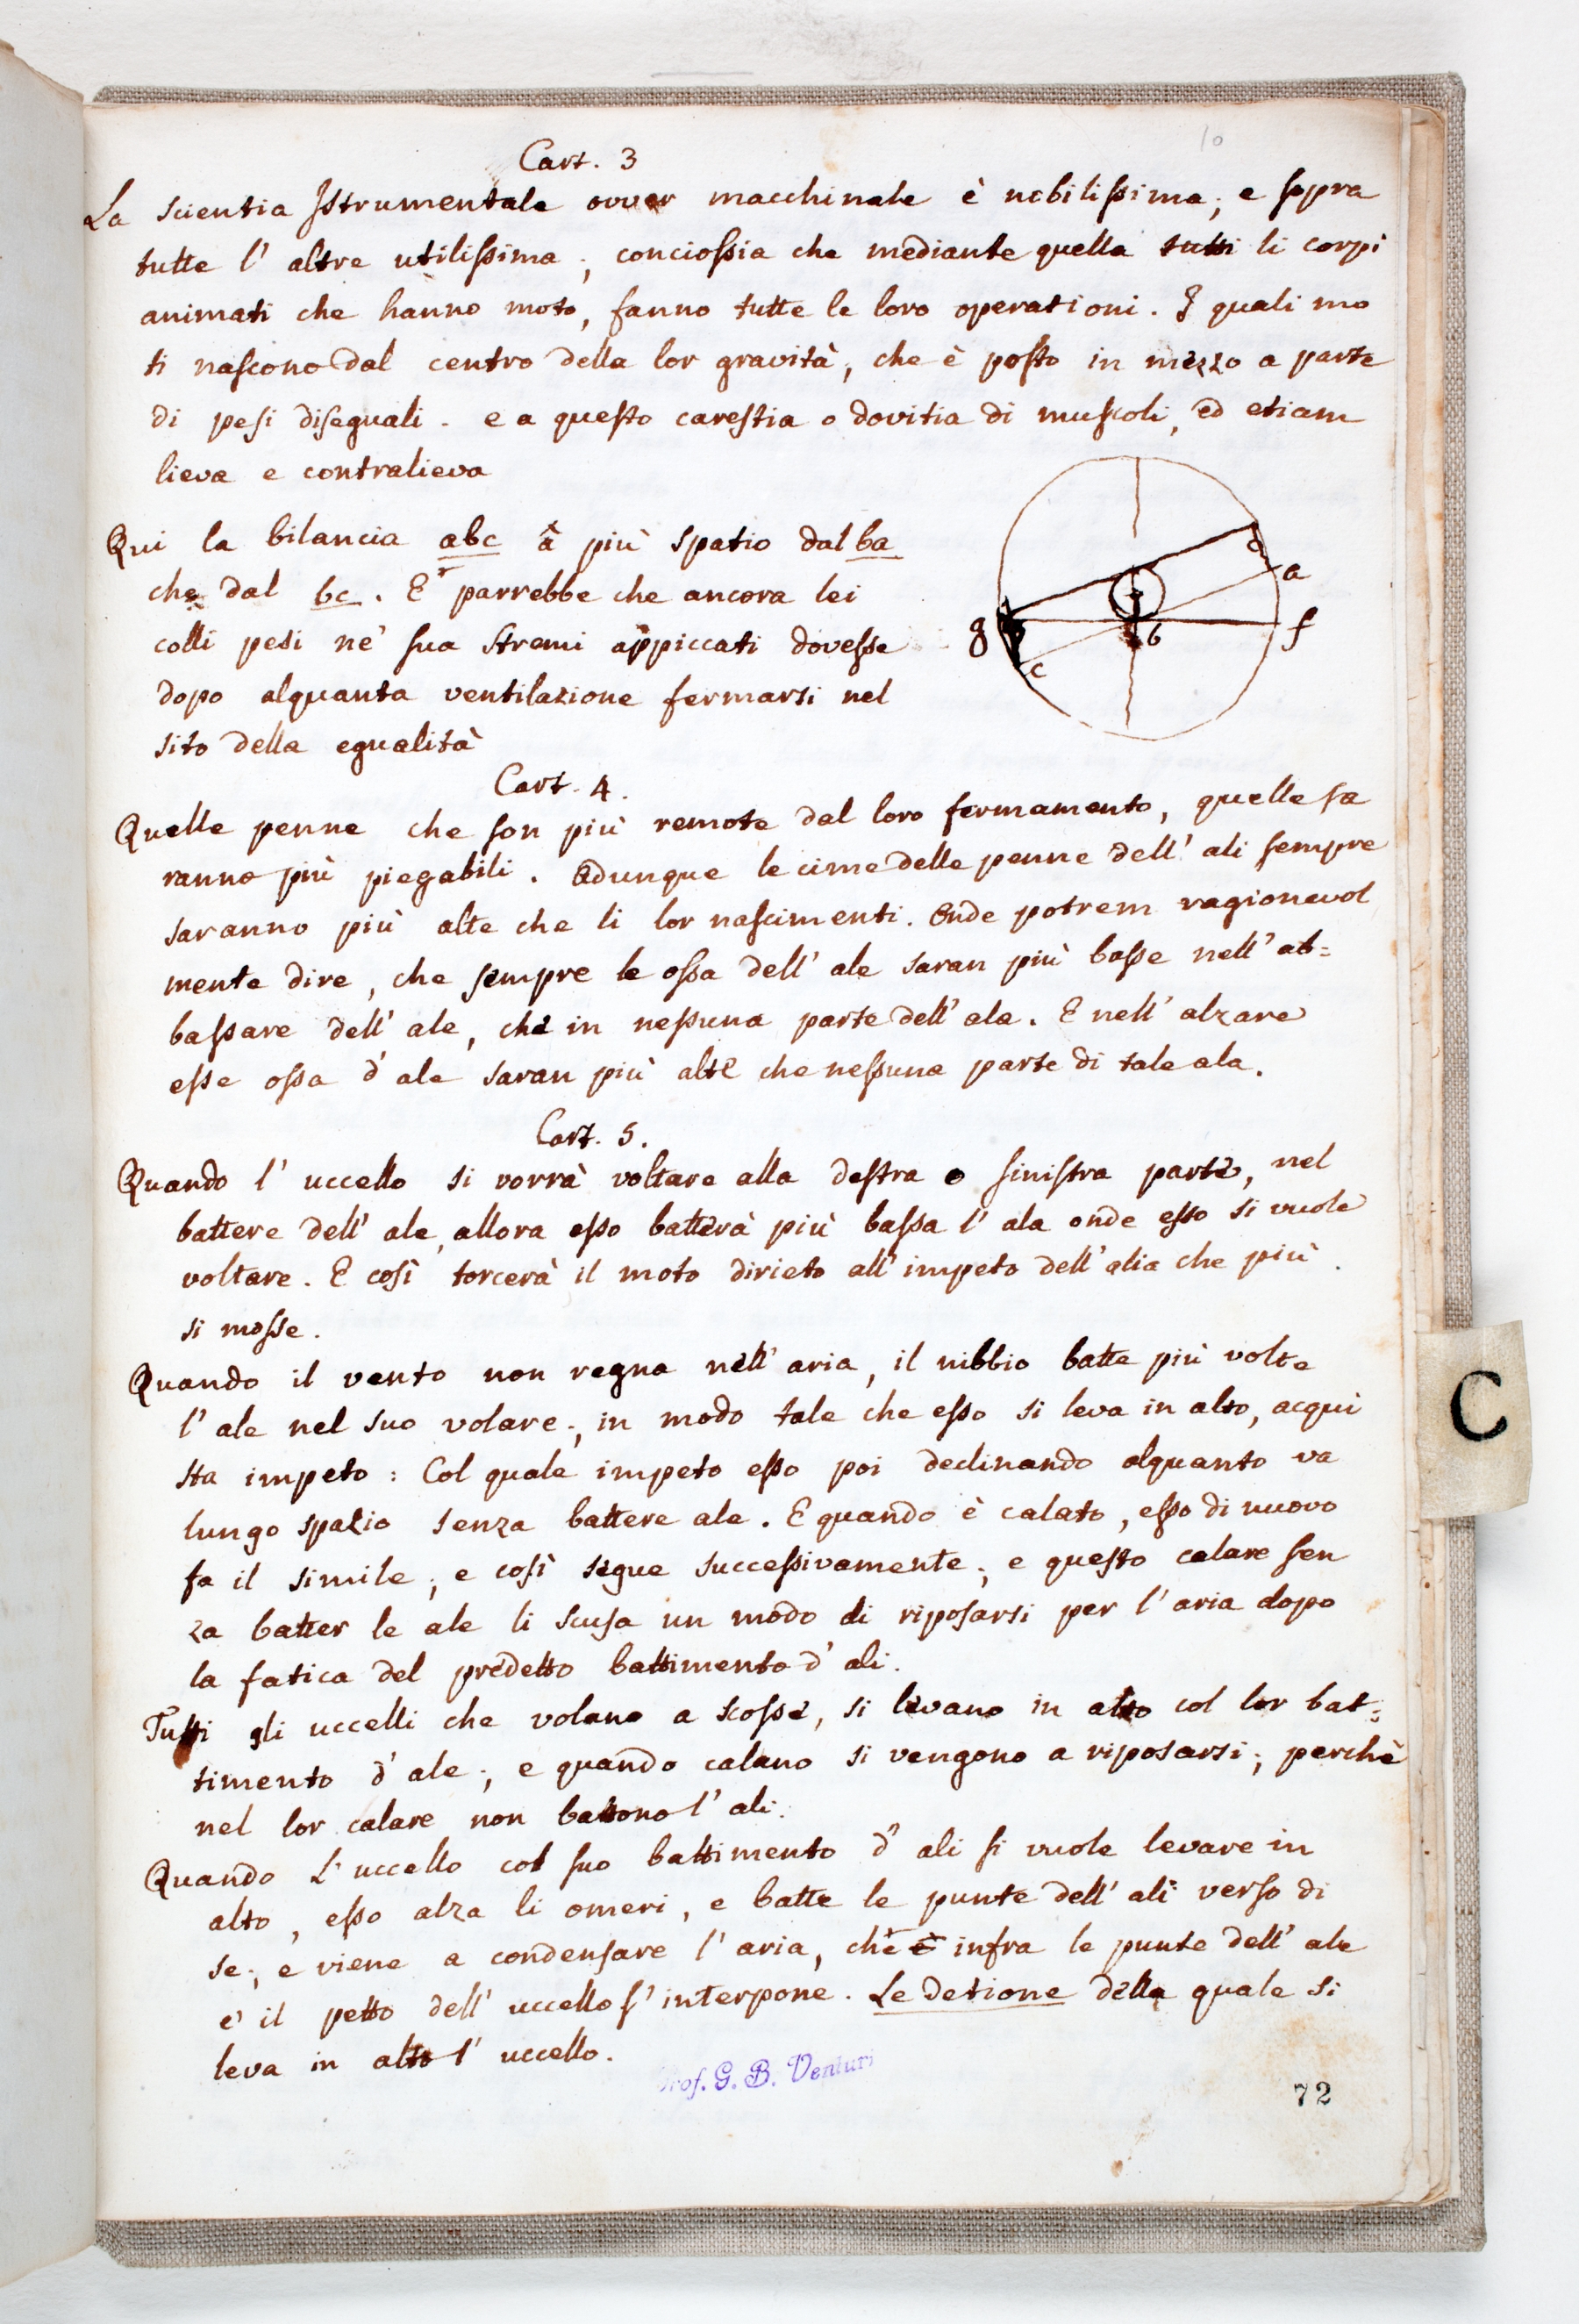 10
Cart. 3
La scientia Istrumentale ovver macchinale è nobilissima; e sopra
tutte l' altre utilissima; conciossia che mediante quella tutti li corpi
animati che hanno moto, fanno tutte le loro operationi. I quali mo
ti nascono dal centro della lor gravità, che è posto in mezzo a parte
di pesi diseguali. e a questo carestia o dovitia di muscoli, ed etiam
lieva e contralieva
Qui la bilancia abc à più spatio dal ba
che dal bc. E parrebbe che ancora lei
colli pesi ne' sua stremi appiccati dovesse
dopo alquanta ventilazione fermarsi nel
sito della egualità
d
a
g
b
f
c
Cart. 4.
Quelle penne che son più remote dal loro fermamento, quelle sa
ranno più piegabili. Adunque le cime delle penne dell' ali sempre
saranno più alte che li lor nascimenti. Onde potrem ragionevol
mente dire, che sempre le ossa dell' ale saran più basse nell' ab=
bassare dell' ale, che in nessuna parte dell' ala. E nell' alzare
esse ossa d' ale saran più alte che nessuna parte di tale ala.
Cart. 5.
Quando l' uccello si vorrà voltare alla destra o sinistra parte, nel
battere dell' ale, allora esso batterà più bassa l' ala onde esso si vuole
voltare. E così torcerà il moto dirieto all' impeto dell' alia che più
si mosse.
Quando il vento non regna nell' aria, il nibbio batte più volte
l' ale nel suo volare; in modo tale che esso si leva in alto, acqui
sta impeto: Col quale impeto esso poi declinando alquanto va
lungo spazio senza battere ale. E quando è calato, esso di nuovo
fa il simile; e così segue successivamente; e questo calare sen
za batter le ale li scusa un modo di riposarsi per l' aria dopo
la fatica del predetto battimento d' ali.
Tutti gli uccelli che volano a scosse, si levano in alto col lor bat=
timento d' ale; e quando calano si vengono a riposarsi; perchè
nel lor calare non battono l' ali.
Quando L' uccello col suo battimento d' ali si vuole levare in
alto, esso alza li omeri, e batte le punte dell' ali verso di
se; e viene a condensare l' aria, che infra le punte dell' ale
e il petto dell' uccello s' interpone. Le detione della quale si
leva in alto l' uccello.
Prof. G. B. Venturi
72
C